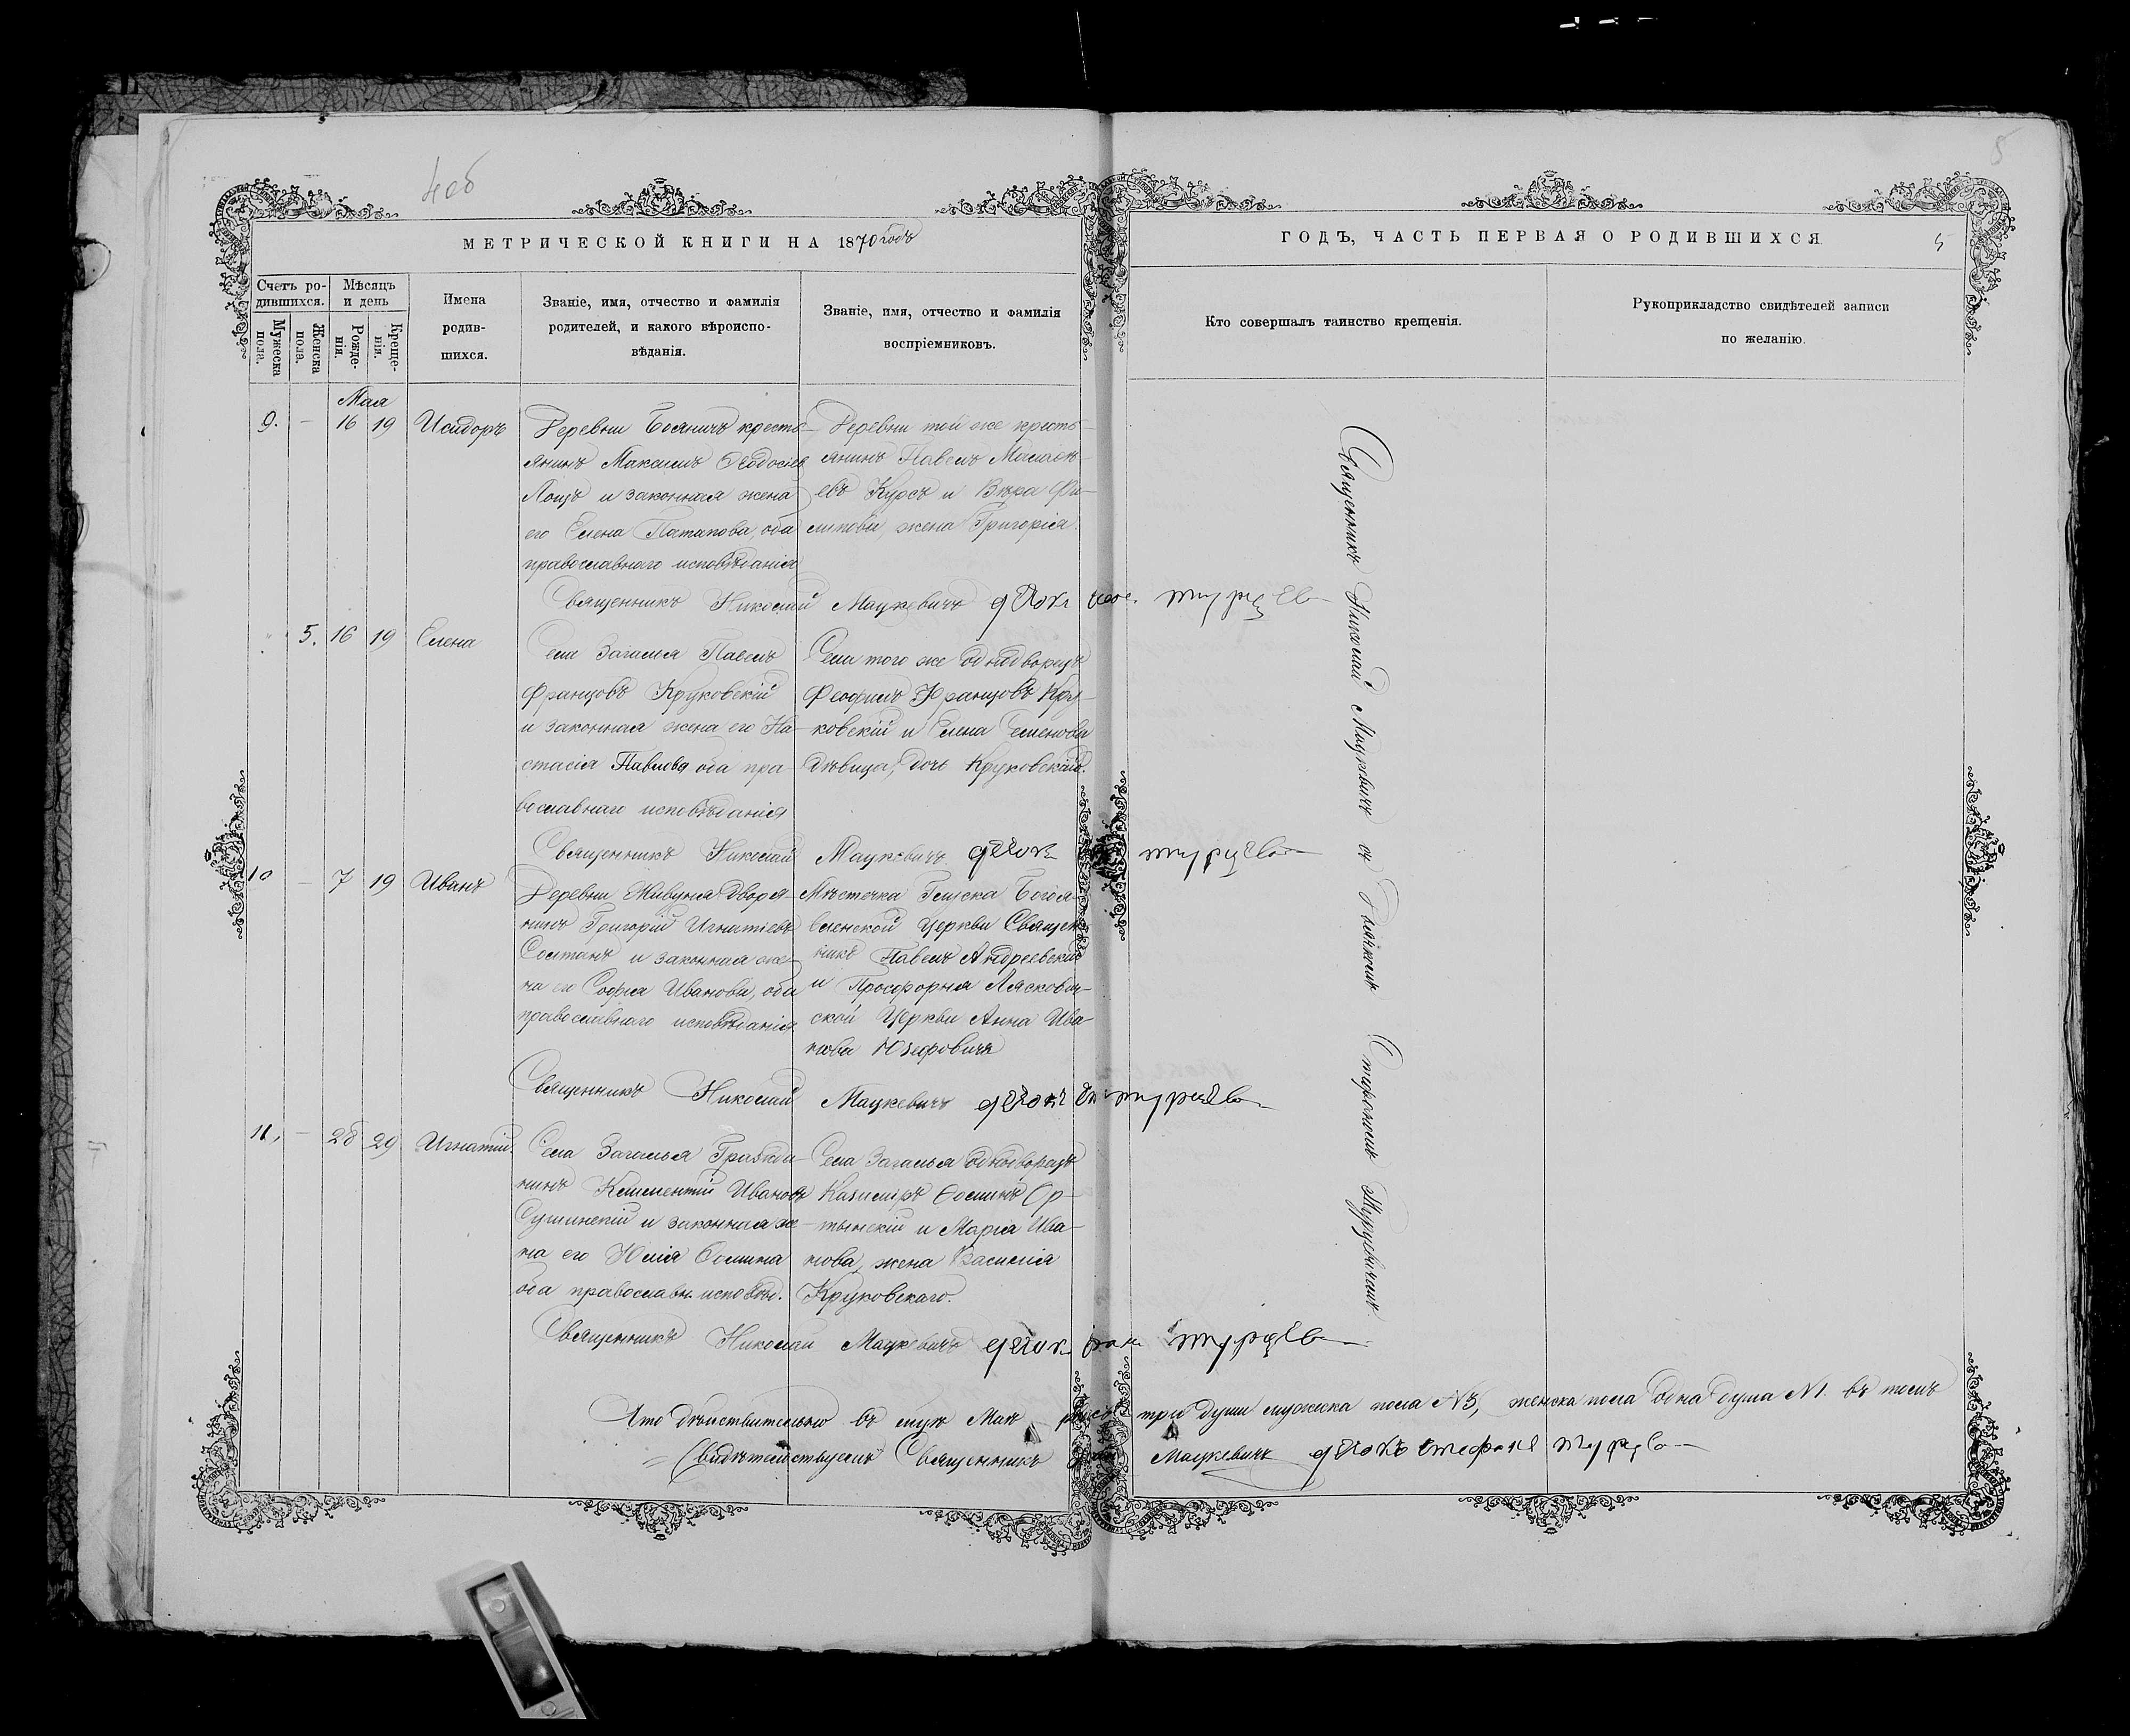 4об
5
МЕТРИЧЕСКОЙ КНИГИ НА 1870 годъ
ГОДЪ, ЧАСТЬ ПЕРВАЯ О РОДИВШИХСЯ.
5
Счетъ ро-
дившихся.
Мужеска пола.
Женска пола.
Мѣсяцъ
и день
Рожде-
нія.
Креще-
нія.
Имена
родив-
шихся.
Званіе, имя, отчество и фамилія
родителей, и какого вѣроиспо-
вѣданія.
Званіе, имя, отчество и фамилія
воспріемниковъ.
Кто совершалъ таинство крещенія.
Рукоприкладство свидѣтелей записи
по желанію.
Мая
9. — 16 19 Исидоръ
Деревни кресть-
янинъ Максимъ Ѳеодосіев
и законная жена
его Елена Патапова, оба
православнаго исповѣданія
Деревни той же кресть-
янинъ Павелъ
евъ Курсъ и Вѣра Фи-
липова, жена Григорія.
Священникъ Николай Мацкевичъ
5. 16 19 Елена
Села Загалья Павелъ
Францовъ Круковскій
и законная жена его На-
стасія Павлова оба пра-
вославнаго исповѣданія
Села того же однодворецъ
Феофилъ Францовъ Кру-
ковскій и Елена Семенова
дѣвица, дочь Круковскаго.
Священникъ Николай Мацкевичъ
10 — 7 19 Иванъ
Деревни Живуня Дворя-
нинъ Григорій Игнатіевъ
Солтанъ и законная же-
на ег Софія Иванова, оба
православнаго исповѣданія
Мѣстечка Глуска Богоя-
вленской Церкви Священ-
никъ Павелъ Андреевскій
и Просфорня Ляскович-
ской Церкви Анна Ива-
нова Юзефовича
Священникъ Николай Мацкевичъ
11. — 28 29 Игнатій.
Села Загалья Гражда-
нинъ Климентій Ивановъ
Сушинскій и законная же-
на его Юлія Ѳомина
оба православн. исповѣд.
Села Загалья однодворецъ
Казиміръ Ѳоминъ Ор-
тынскій и Марія Ива-
нова, жена Василія
Круковскаго.
Священникъ Николай Мацкевичъ
Священникъ Николай Мацкевичъ съ Дьячкомъ Стефаномъ Турцевичемъ
Что дѣйствительно въ маѣ три души мужеска пола №3, женска пола одна душа №1. въ томъ
Свидѣтельствуемъ Священникъ Мацкевичъ дячокъ стефанъ турцев